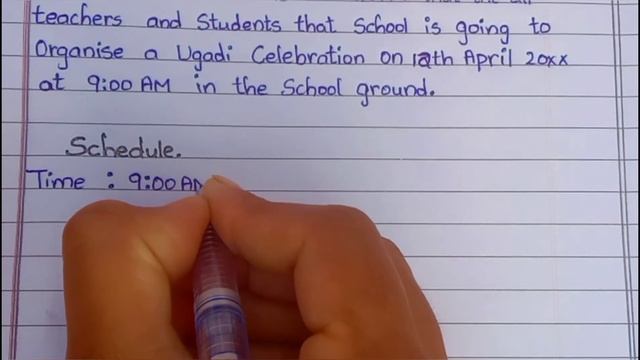 teachers and Students that School is going to
Organise a Ugadi Celebration on 12th April 20xx
at 9:00 AM in the School ground.
Schedule.
Time : 9:00 AM